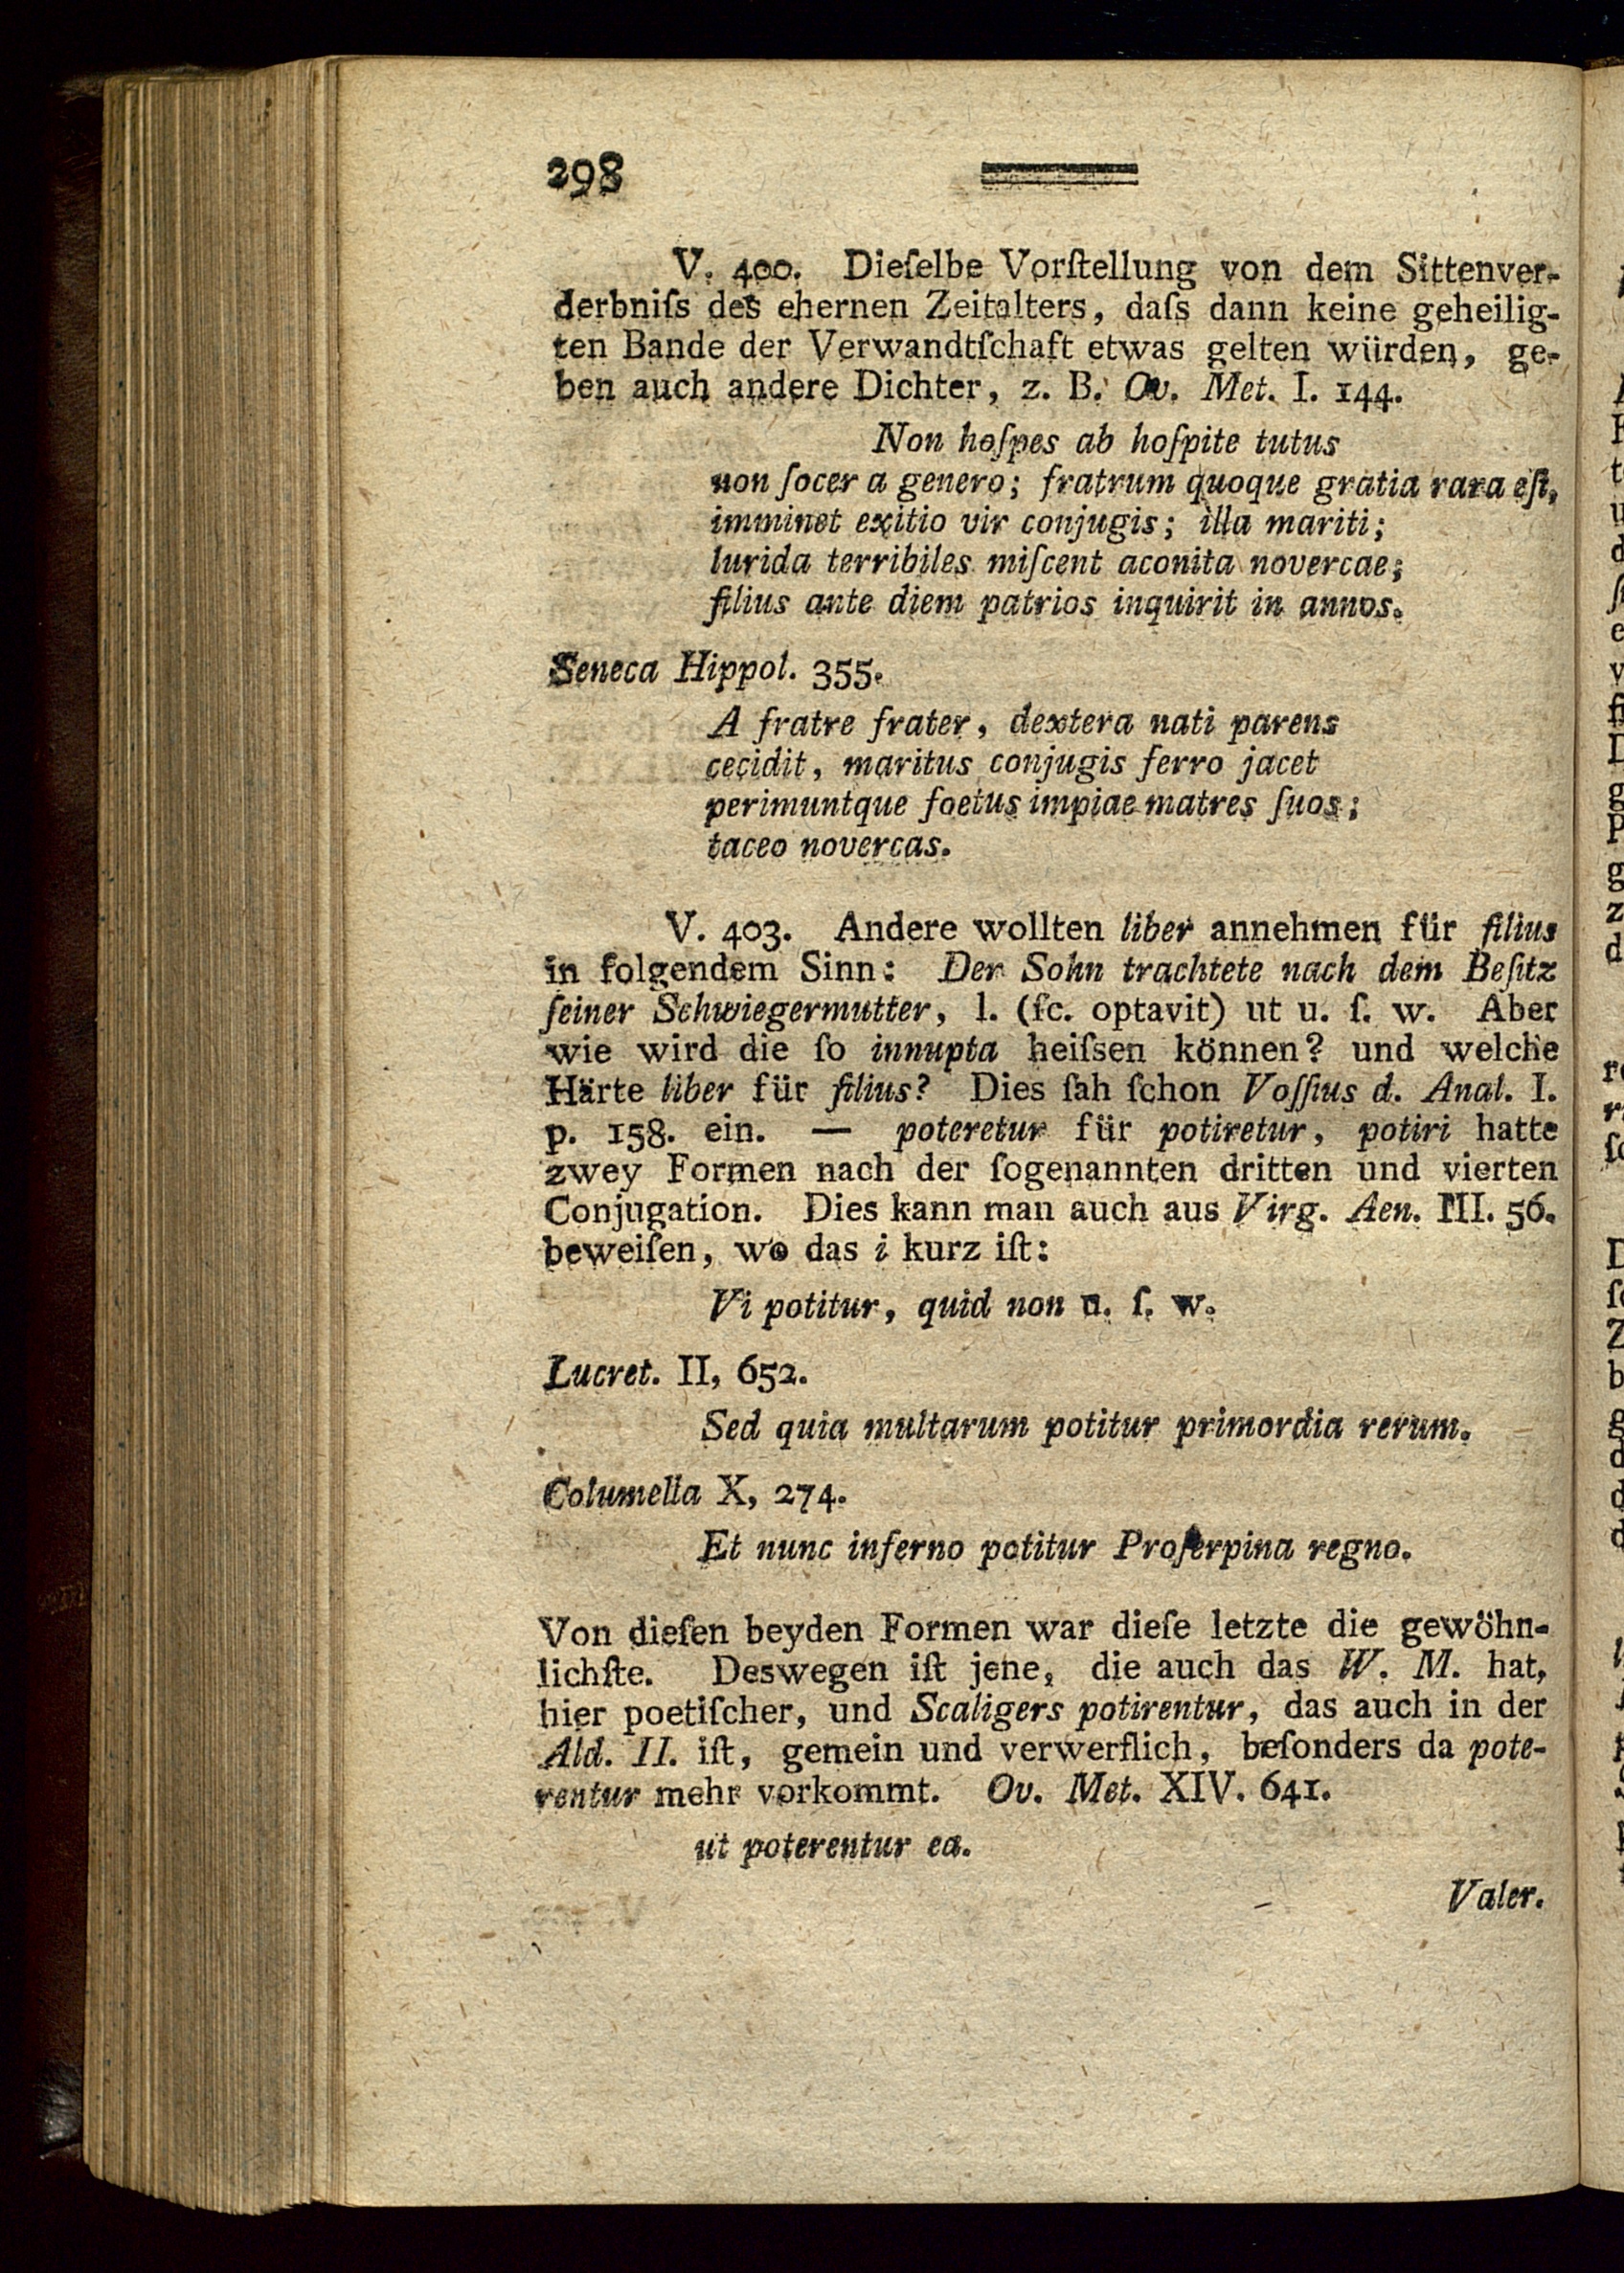 298
V. 400. Dieſelbe Vorſtellung von dem Sittenver-
derbniſs des ehernen Zeitalters, daſs dann keine geheilig-
ten Bande der Verwandtſchaft etwas gelten würden, ge-
ben auch andere Dichter, z. B. Ov. Met. I. 144.
Non hoſpes ab hoſpite tutus
non ſocer a genero; fratrum quoque gratia rara eſt,
imminet exitio vir conjugis; illa mariti;
lurida terribiles miſcent aconita novercae;
filius ante diem patrios inquirit in annos.
Seneca Hippol. 355.
A fratre frater, dextera nati parens
cecidit, maritus conjugis ferro jacet
perimuntque foetus impiae matres ſuos;
taceo novercas.
V. 403. Andere wollten liber annehmen für filius
in folgendem Sinn: Der Sohn trachtete nach dem Beſitz
ſeiner Schwiegermutter, l. (ſc. optavit) ut u. ſ. w. Aber
wie wird die ſo innupta heiſsen können? und welche
Härte liber für filius? Dies ſah ſchon Voſſius d. Anal. I.
p. 158. ein. — poteretur für potiretur, potiri hatte
zwey Formen nach der ſogenannten dritten und vierten
Conjugation. Dies kann man auch aus Virg. Aen. III. 56.
beweiſen, wo das i kurz iſt:
Vi potitur, quid non u. ſ. w.
Lucret. II, 652.
Sed quia multarum potitur primordia rerum.
Columella X, 274.
Et nunc inferno potitur Proſerpina regno.
Von dieſen beyden Formen war dieſe letzte die gewöhn-
lichſte. Deswegen iſt jene, die auch das W. M. hat,
hier poetiſcher, und Scaligers potirentur, das auch in der
Ald. II. iſt, gemein und verwerflich, beſonders da pote-
rentur mehr vorkommt. Ov. Met. XIV. 641.
ut poterentur ea.
Valer.